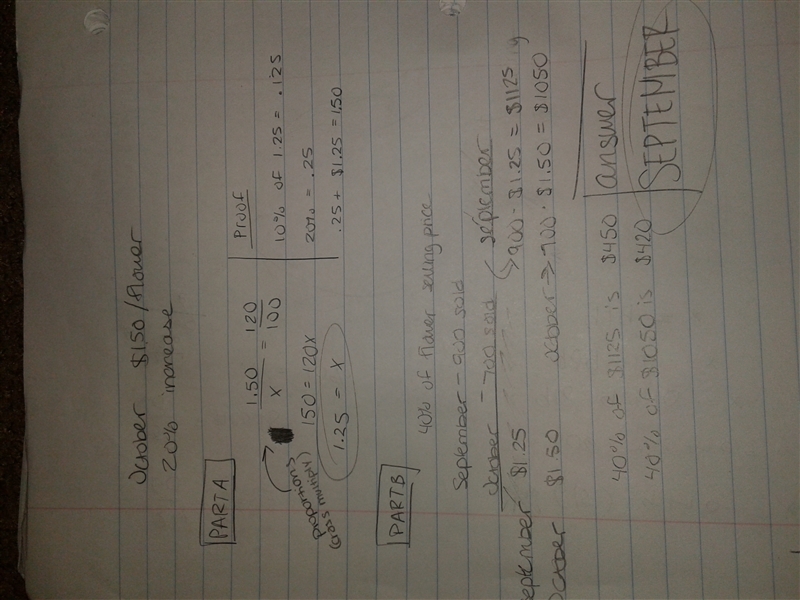 October $1.50/flower
20% increase
PART A
1.50 / x = 120 / 100
proportions
(cross multiply)
150 = 120x
1.25 = x
Proof
10% of 1.25 = .125
20% = .25
.25 + $1.25 = 1.50
PART B
40% of flower selling price
September - 900 sold
October - 700 sold
September $1.25
September
900 · $1.25 = $1125
October $1.50
October → 700 · $1.50 = $1050
40% of $1125 is $450
40% of $1050 is $420
answer
SEPTEMBER